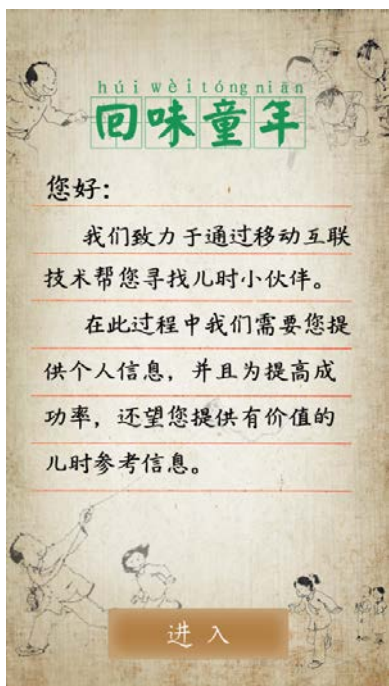 húi wèi tóng nián
回味童年
您好：
我们致力于通过移动互联
技术帮您寻找儿时小伙伴。
在此过程中我们需要您提
供个人信息，并且为提高成
功率，还望您提供有价值的
儿时参考信息。
进入